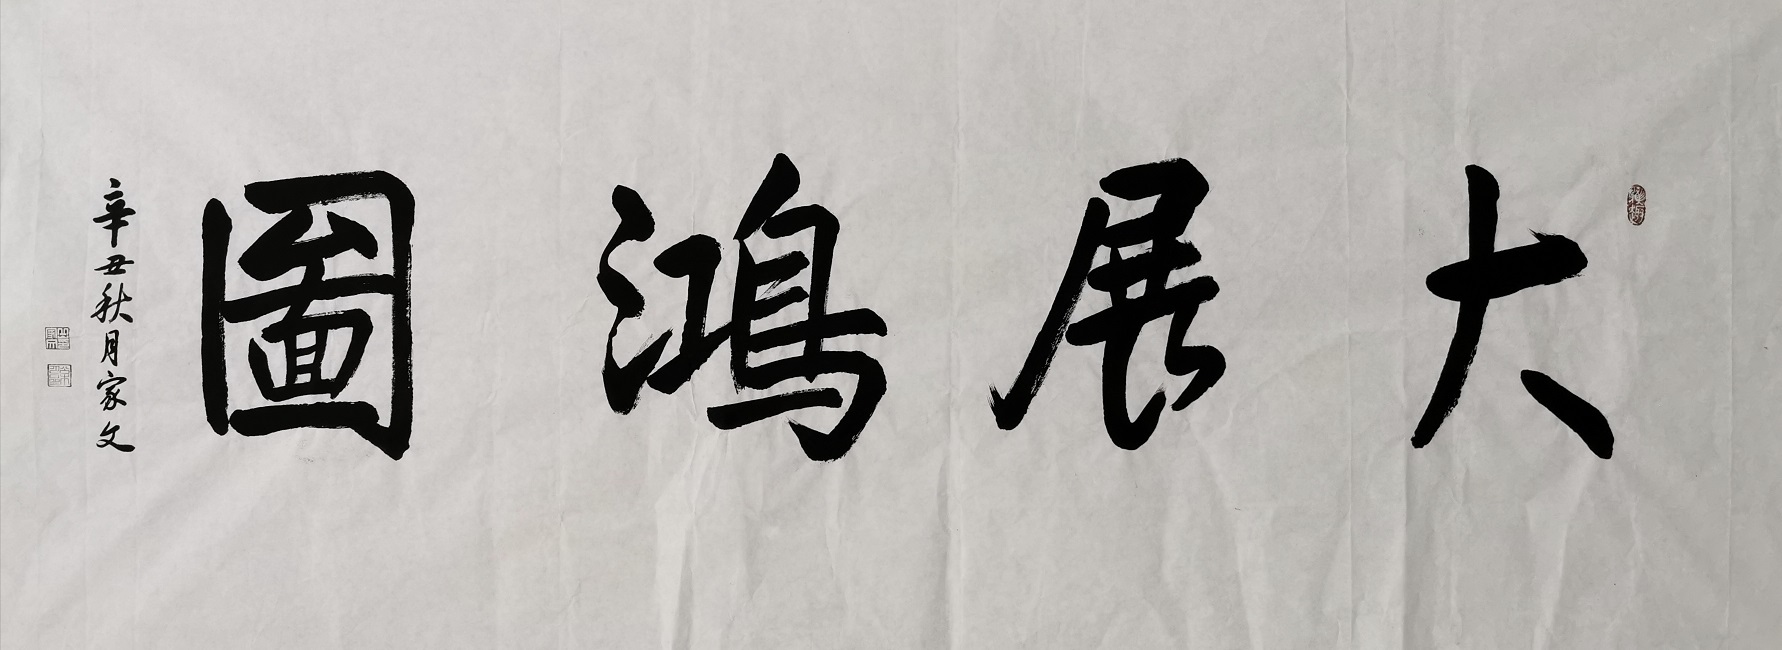 大展鴻圖
辛丑秋月家文